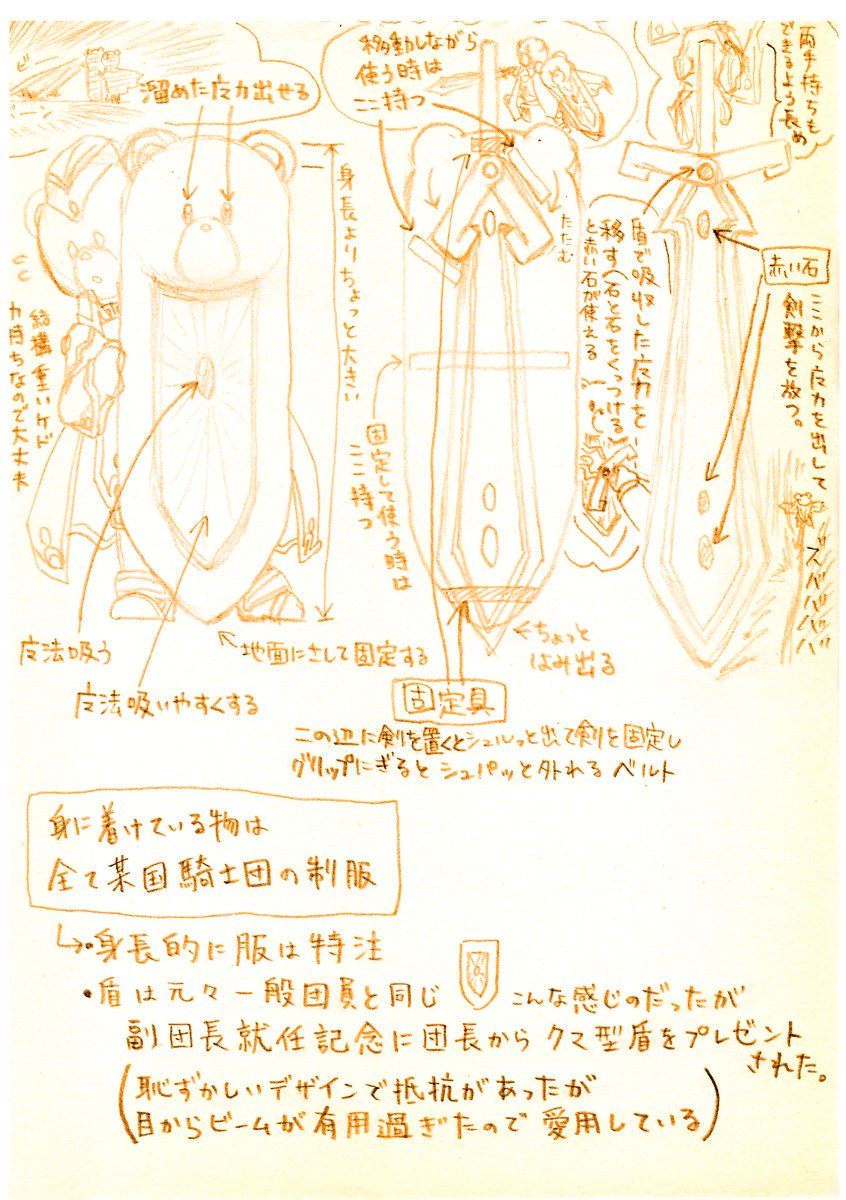 溜めた魔力出せる
移動しながら
使う時は
ここ持つ
両手持ちも
できるよう長め
身長よりちょっと大きい
結構重いケド
力持ちなので大丈夫
たたむ
盾で吸収した魔力を
移す(石と石をくっつける)
と赤い石が使える
赤い石
ここから魔力を出して
剣撃を放つ。
ズババババ
固定して使う時は
ここ持つ
魔法吸う
魔法吸いやすくする
地面にさして固定する
ちょっと
はみ出る
固定具
この辺に剣を置くとシュルっと出て剣を固定し
グリップにぎるとシュパッと外れるベルト
身に着けている物は
全て某国騎士団の制服
・身長的に服は特注
・盾は元々一般団員と同じ こんな感じのだったが
副団長就任記念に団長からクマ型盾をプレゼント
された。
(恥ずかしいデザインで抵抗があったが
目からビームが有用過ぎたので愛用している)